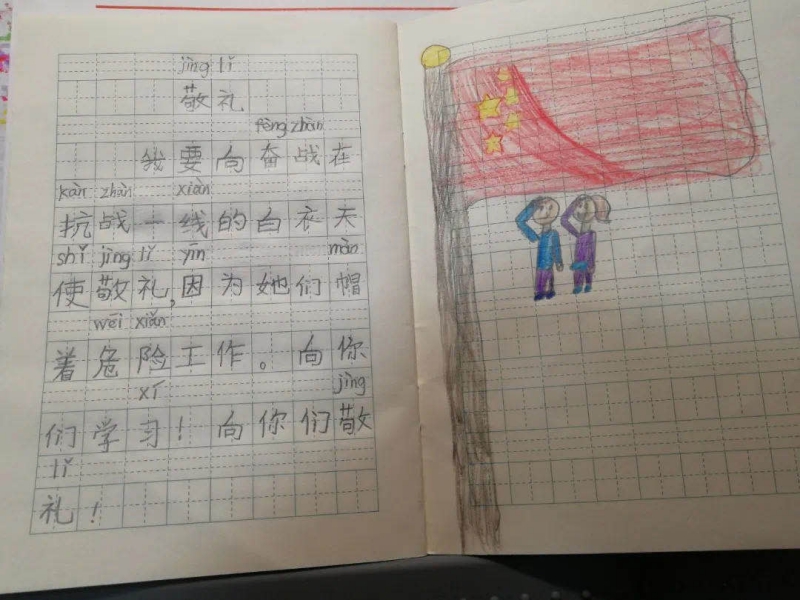 jìng lǐ
敬礼
fèng zhàn
我要向奋战在
kàn zhàn xiàn
抗战一线的白衣天
shǐ jìng lǐ yīn màn
使敬礼,因为她们帽
wēi xiǎn
着危险工作。向你
xí jìng
们学习!向你们敬
lǐ
礼!